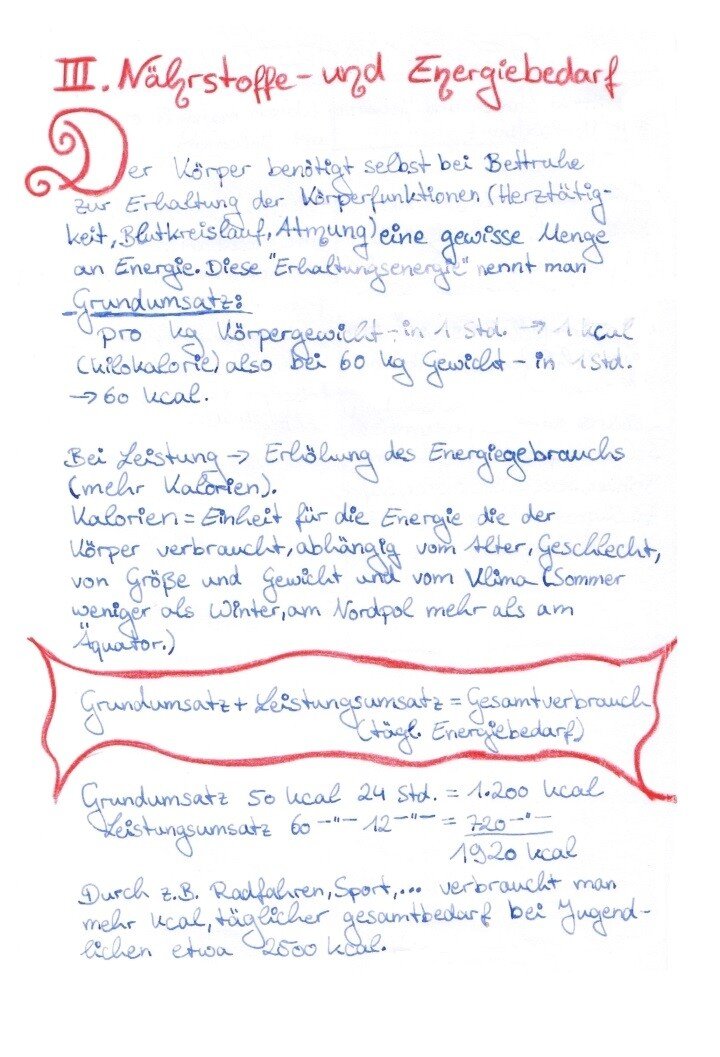 III. Nährstoffe- und Energiebedarf
Der Körper benötigt selbst bei Bettruhe
zur Erhaltung der Körperfunktionen (Herztätig-
keit, Blutkreislauf, Atmung) eine gewisse Menge
an Energie. Diese "Erhaltungsenergie" nennt man
Grundumsatz:
pro kg Körpergewicht - in 1 Std. → 1 kcal
(Kilokalorie) also bei 60 kg Gewicht - in 1 Std.
→ 60 kcal.
Bei Leistung → Erhöhung des Energiegebrauchs
(mehr Kalorien).
Kalorien = Einheit für die Energie die der
Körper verbraucht, abhängig vom Alter, Geschlecht,
von Größe und Gewicht und vom Klima (Sommer
weniger als Winter, am Nordpol mehr als am
Äquator.)
Grundumsatz + Leistungsumsatz = Gesamtverbrauch
(tägl. Energiebedarf)
Grundumsatz 50 kcal 24 Std. = 1.200 kcal
Leistungsumsatz 60 -"- 12 -"- = 720 -"-
1920 kcal
Durch z.B. Radfahren, Sport,... verbraucht man
mehr kcal, täglicher gesamtbedarf bei Jugend-
lichen etwa 2500 kcal.